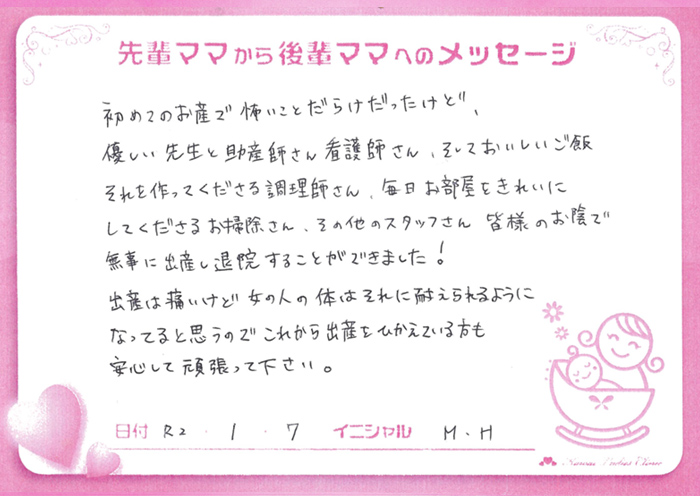 先輩ママから後輩ママへのメッセージ
初めてのお産で怖いことだらけだったけど、
優しい先生と助産師さん看護師さん、そしておいしいご飯
それを作ってくださる調理師さん、毎日お部屋をきれいに
してくださるお掃除さん、その他のスタッフさん 皆様のお陰で
無事に出産し退院することができました!
出産は痛いけど女の人の体はそれに耐えられるように
なってると思うのでこれから出産をひかえている方も
安心して頑張って下さい。
日付 R2 ・ 1 ・ 7 イニシャル M・H